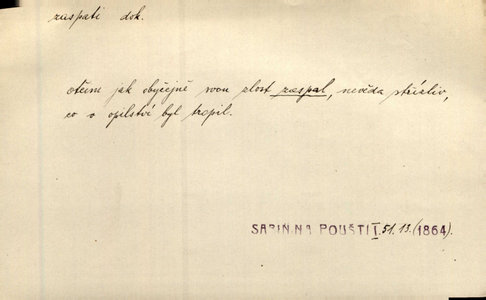 zaspati dok.
otčím jak obyčejně svou zlost zaspal, nevěda střízliv,
co v opilství byl tropil.
SABIN NA POUŠTI I 51. 13. (1864).